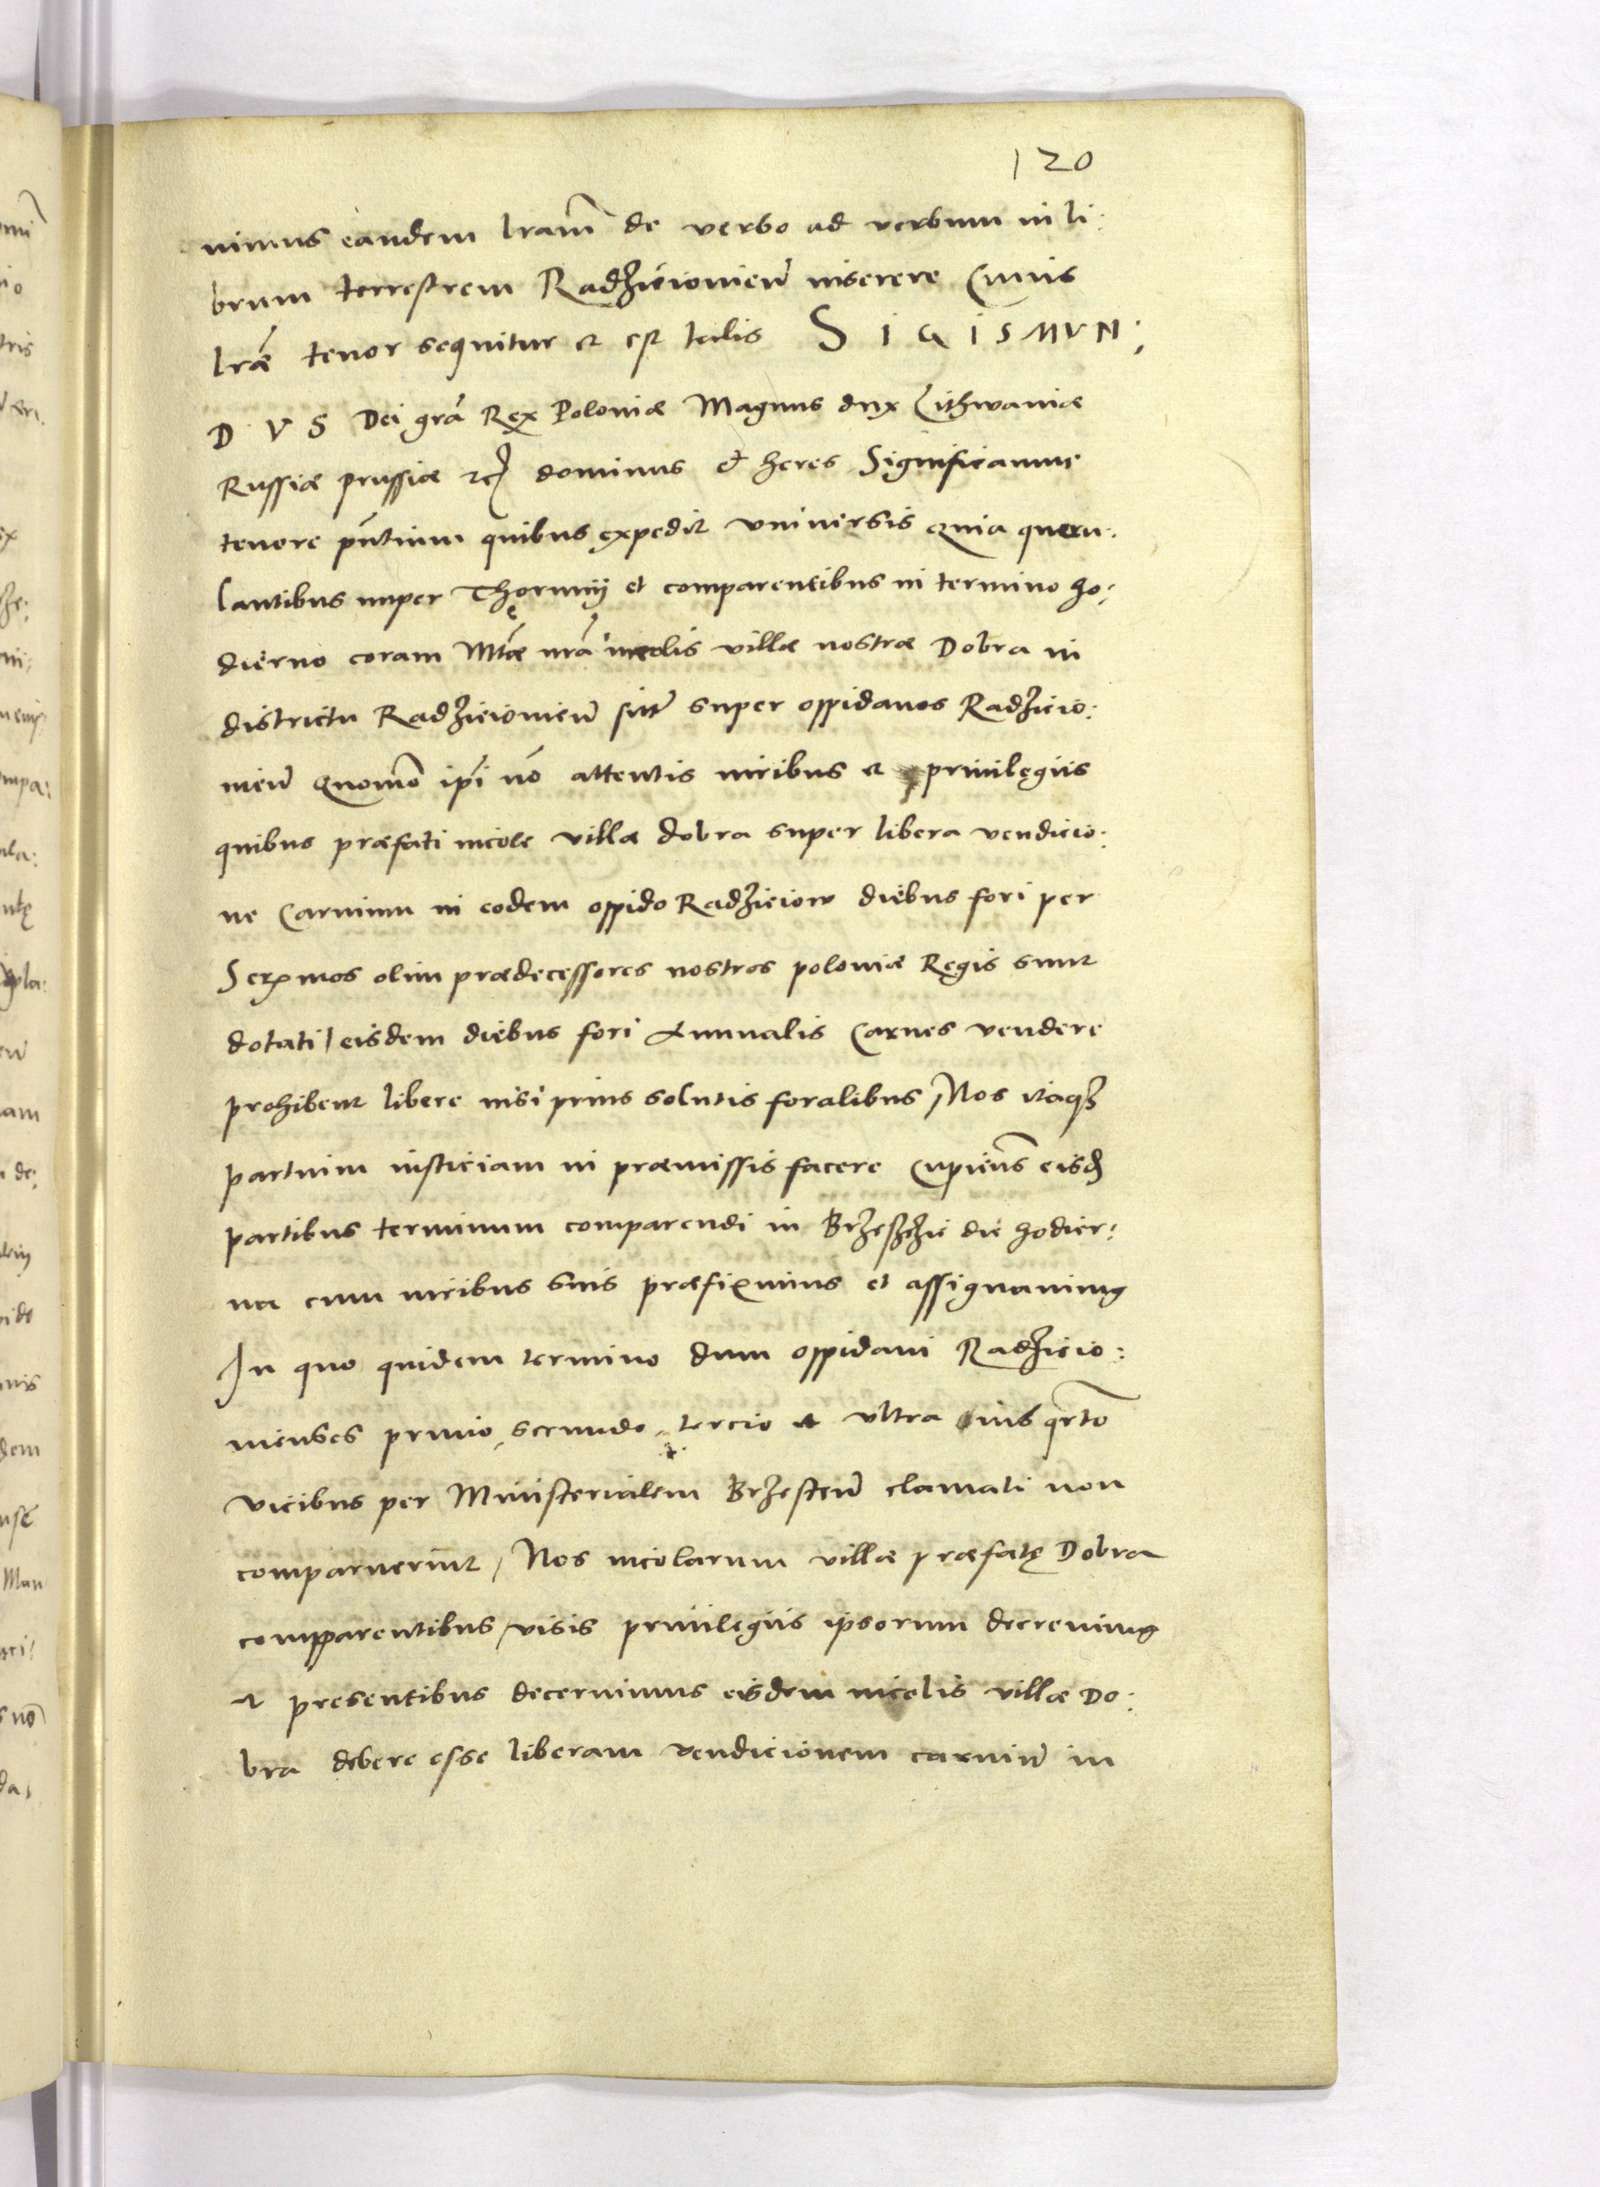 120
nimus eandem lram̃ de verbo ad verbum in li:
brum terrestrem Radzieiovien̄ inserere Cuius
lræ̃ tenor sequitur et est talis SIGISMVN:
DVS Dei grã Rex Poloniæ Magnus dux Lithwaniæ
Russiæ prussiæ etc̃ dominus et heres Significamus
tenore pñtium quibus expedit vniuersis Quia queru:
lantibus nuper Thorunij et comparentibus in termino ho:
dierno coram Mtæ̃ nrã incolis villæ nostræ Dobra in
districtu Radzieiovien̄ sitæ̃ super oppidanos Radzieio:
vien̄ Quomõ ipĩ nõ attentis iuribus et priuilegiis
quibus præfati incole villæ dobra super libera vendicio:
ne Carnium in eodem oppido Radzieiow diebus fori per
Serx̃mos olim prædecessores nostros poloniæ Regis sunt
dotati / eisdem diebus fori Annualis Carnes vendere
prohibent libere nisi prius solutis foralibus / Nos itaq̃
partium iusticiam in præmissis facere Cupien̄s eisd̃
partibus terminum comparendi in Brzesczie die hodier:
na cum iuribus suis præfiximus et assignauimus
In quo quidem termino dum oppidani Radzieio:
vienses primo, secundo, tercio et vltra ius qrto̅
vicibus per Ministerialem Brzesten̄ clamati non
comparuerint / Nos incolarum villæ præfatę Dobra
comparentibus / visis priuilegiis ipsorum decreuimus
et presentibus decernimus eisdem incolis villæ Do:
bra debere esse liberam vendicionem carniũ in